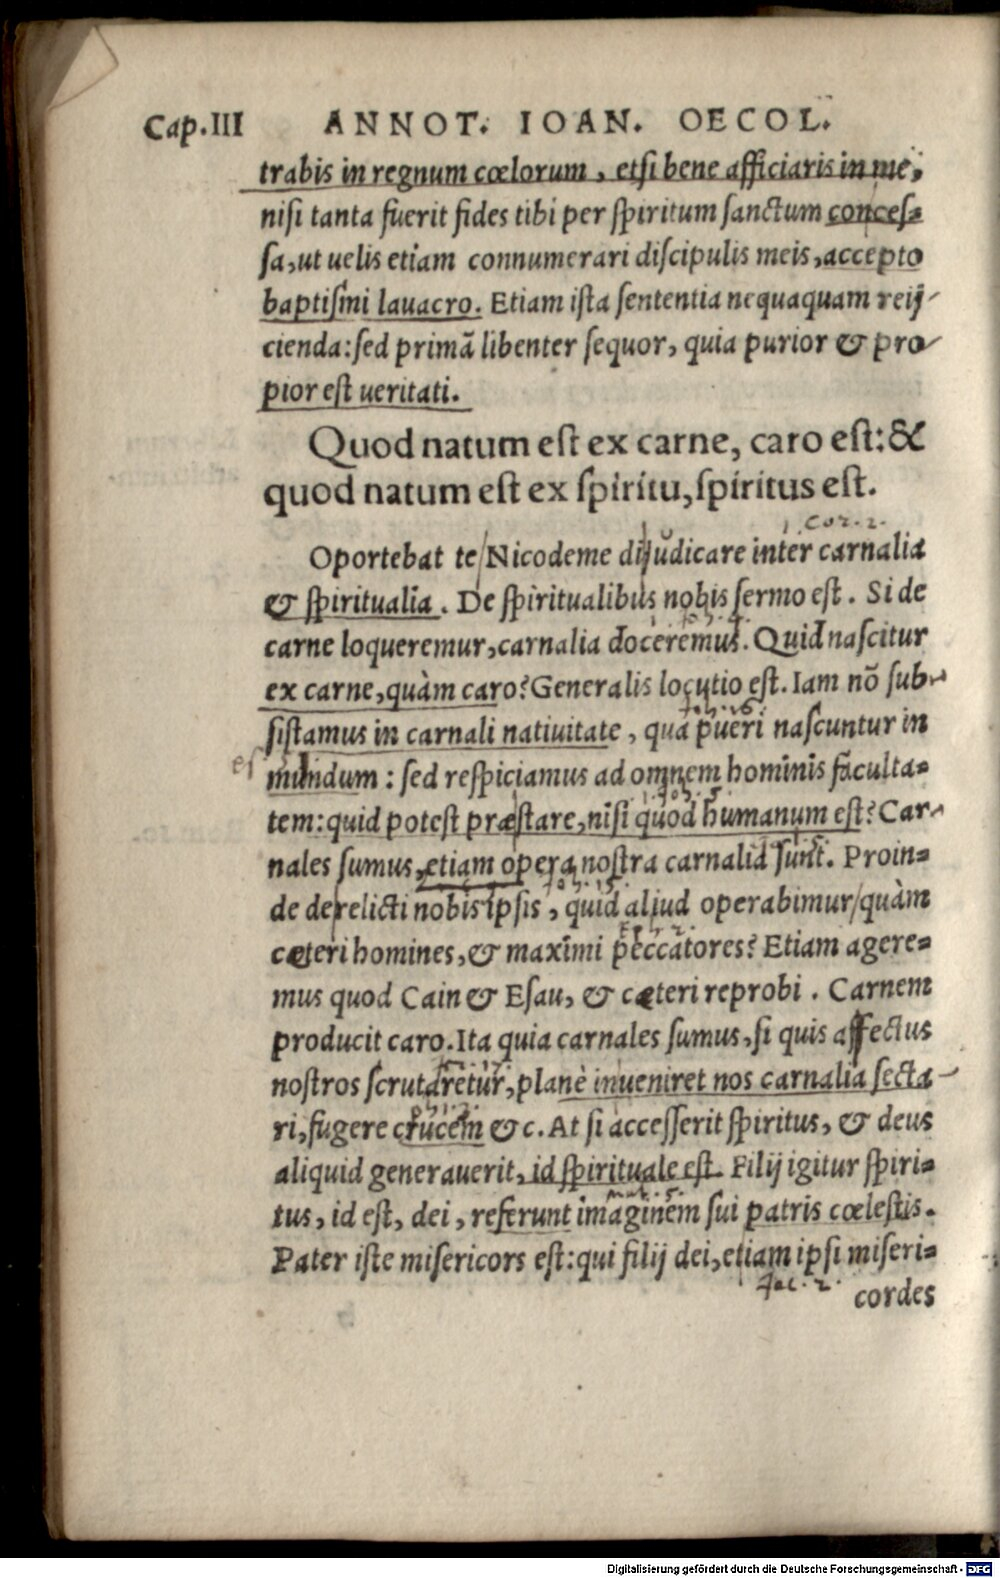 Cap.III ANNOT. IOAN. OECOL.
trabis in regnum cœlorum, etſi bene afficiaris in me,
niſi tanta fuerit fides tibi per ſpiritum ſanctum conceſ⸗
ſa, ut uelis etiam connumerari diſcipulis meis, accepto
baptiſmi lauacro. Etiam iſta ſententia nequaquam reij-
cienda: ſed primā libenter ſequor, quia purior & pro-
pior eſt ueritati.
Quod natum eſt ex carne, caro eſt: &
quod natum eſt ex ſpiritu, ſpiritus eſt.
1 Cor. 2.
Oportebat te Nicodeme dijudicare inter carnalia
& ſpiritualia. De ſpiritualibus nobis ſermo eſt. Si de
carne loqueremur, carnalia doceremus. Quid naſcitur
ex carne, quàm caro? Generalis locutio eſt. Iam nō ſub-
ſiſtamus in carnali natiuitate, qua pueri naſcuntur in
mundum: ſed reſpiciamus ad omnem hominis faculta⸗
tem: quid poteſt præſtare, niſi quod humanum eſt? Car-
nales ſumus, etiam opera noſtra carnalia ſunt. Proin⸗
Joh. 15.
de derelicti nobis ipſis, quid aliud operabimur quàm
Eph. 2.
cæteri homines, & maximi peccatores? Etiam agere⸗
mus quod Cain & Eſau, & cæteri reprobi. Carnem
producit caro. Ita quia carnales ſumus, ſi quis affectus
noſtros ſcrutaretur, planè inueniret nos carnalia ſecta-
ri, fugere crucem & c. At ſi acceſſerit ſpiritus, & deus
aliquid generauerit, id ſpirituale eſt. Filij igitur ſpiri⸗
mat. 5.
tus, id eſt, dei, referunt imaginem ſui patris cœleſtis.
Pater iſte miſericors eſt: qui filij dei, etiam ipſi miſeri⸗
Jac. 2.
cordes
Digitalisierung gefördert durch die Deutsche Forschungsgemeinschaft - DFG